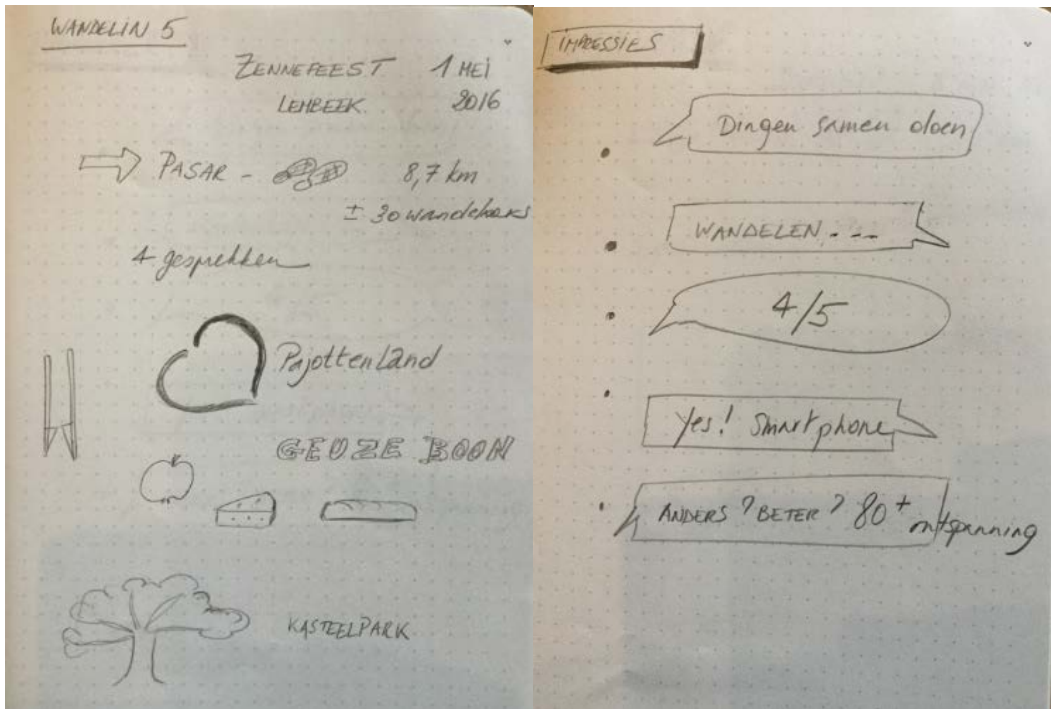 WANDELIN 5
ZENNEFEEST 1 MEI
LEMBEEK 2016
PASAR - 8,7 km
± 30 wandelaars
4 gesprekken
Pajottenland
GEUZE BOON
KASTEELPARK
IMPRESSIES
Dingen samen doen
WANDELEN ---
4/5
Yes! Smartphone
ANDERS ? BETER ? 80+ ontspanning